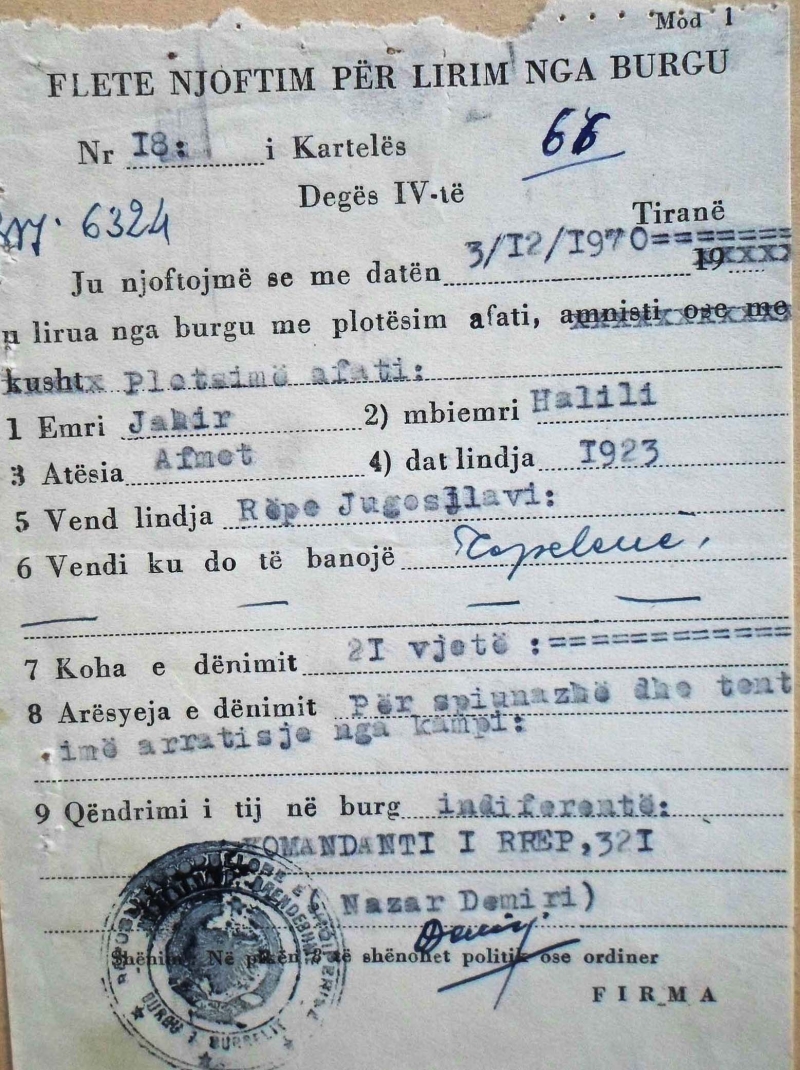 Mod 1
FLETE NJOFTIM PËR LIRIM NGA BURGU
Nr I8: i Kartelës 66
Degës IV-të
6324
Tiranë
Ju njoftojmë se me datën 3/I2/I970======== 19xxxx
u lirua nga burgu me plotësim afati, amnisti ose me
kusht x Plotsimë afati:
1 Emri Jahir 2) mbiemri Halili
3 Atësia Afmet 4) dat lindja I923
5 Vend lindja Rëpe Jugosllavi:
6 Vendi ku do të banojë Tepelenë,
7 Koha e dënimit 2I vjetë :=============
8 Arësyeja e dënimit Për spiunazhë dhe tent
imë arratisje nga kampi:
9 Qëndrimi i tij në burg indiferentë:
KOMANDANTI I RREP,32I
Nazar Demiri)
Shënim: Në pikën 8 të shënohet politik ose ordiner
FIRMA
BURGU